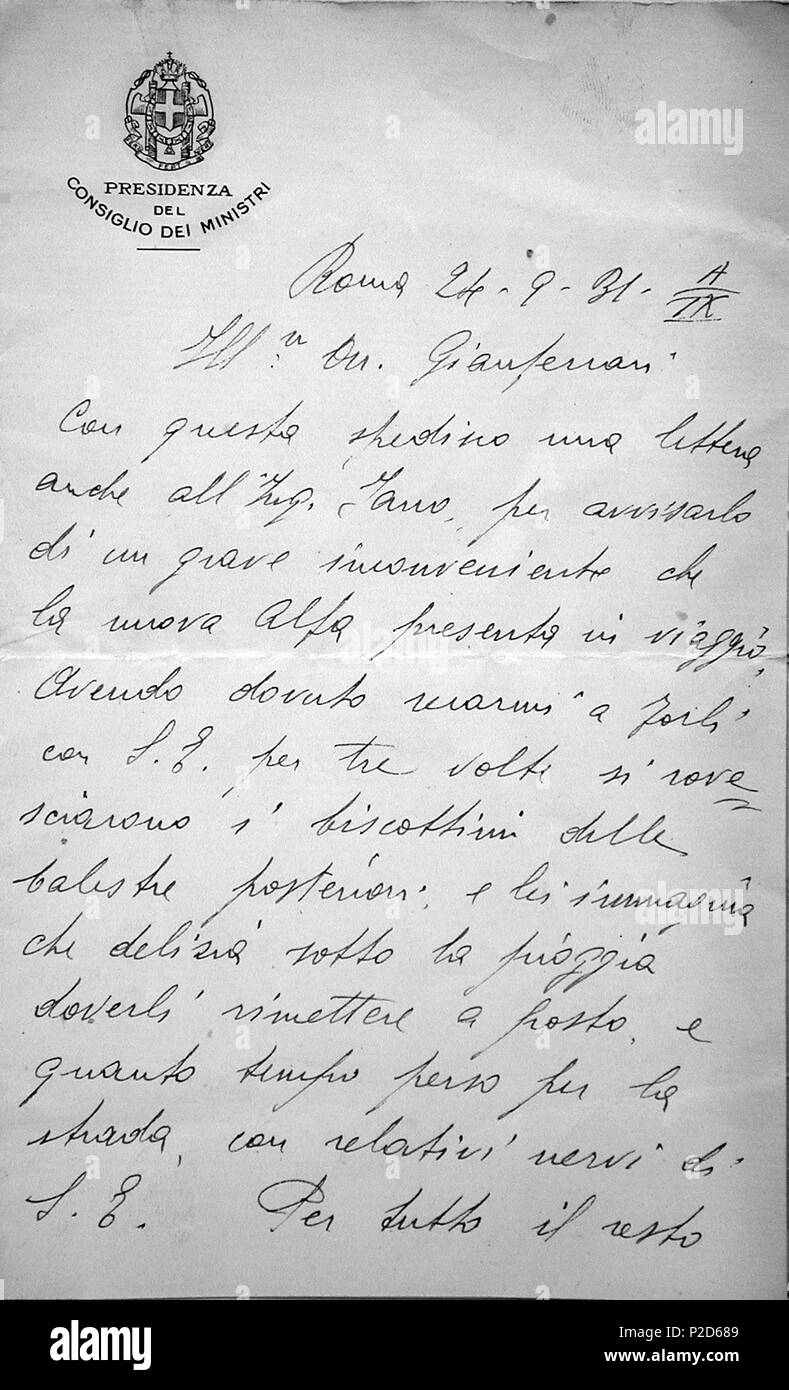 FERT
PRESIDENZA
DEL
CONSIGLIO DEI MINISTRI
Roma 24-9-31- A/IX
Ill.mo On. Gianferrari
Con questa spedisco una lettera
anche all'Ing. Jano, per avvisarlo
di un grave inconveniente che
la nuova Alfa presenta in viaggio.
Avendo dovuto recarmi a Forlì
con S. E. per tre volte si rove=
sciarono i biscottini delle
balestre posteriori, e lei immagina
che delizia sotto la pioggia
doverli rimettere a posto, e
quanto tempo perso per la
strada, con relativi nervi di
S. E. Per tutto il resto
alamy
alamy
Image ID: P2D689
www.alamy.com